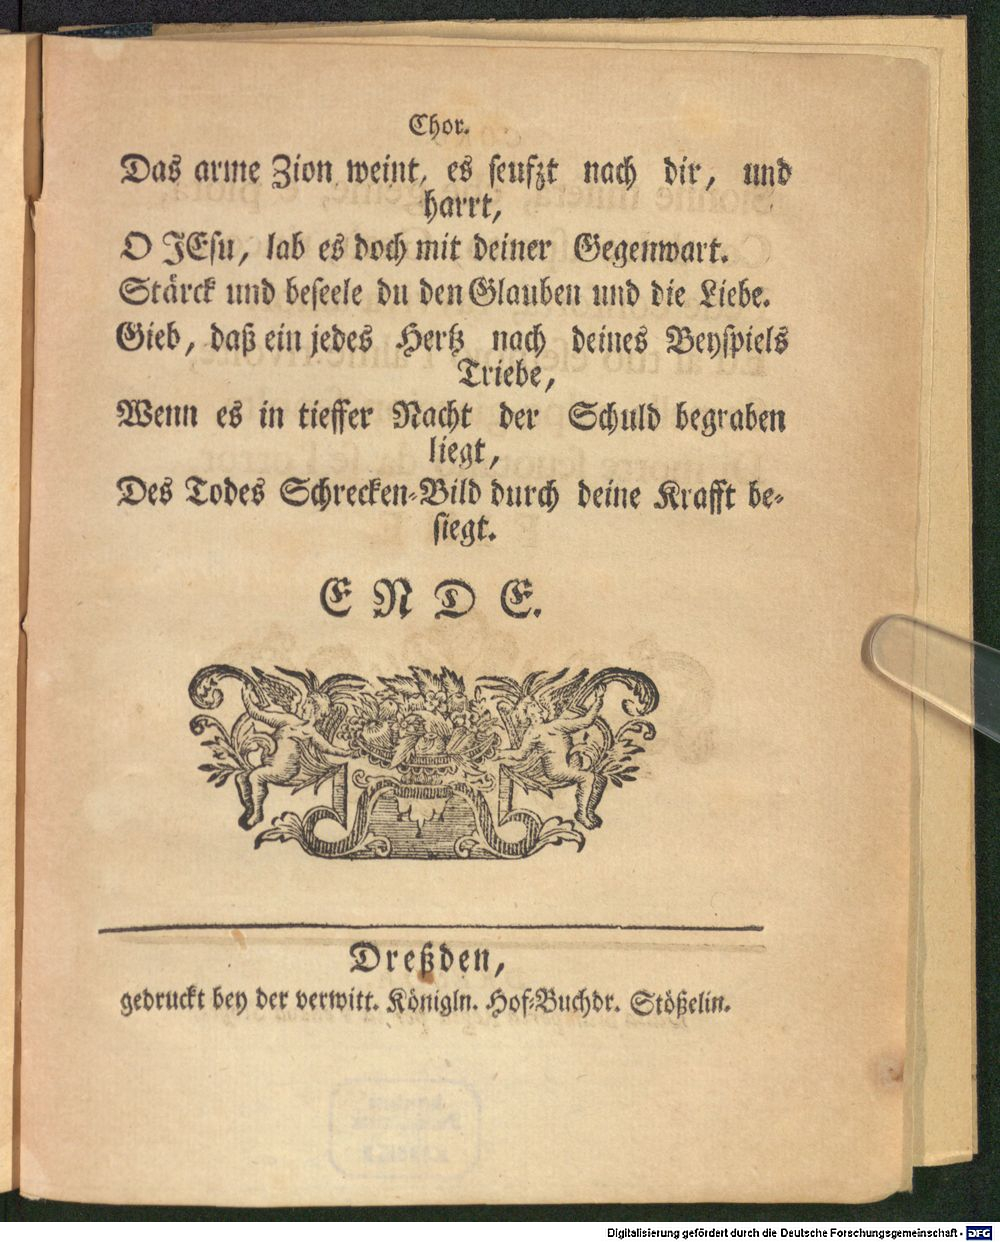 Chor.
Das arme Zion weint, es seufzt nach dir, und
harrt,
O JEsu, lab es doch mit deiner Gegenwart.
Stärck und beseele du den Glauben und die Liebe.
Gieb, daß ein jedes Hertz nach deines Beyspiels
Triebe,
Wenn es in tieffer Nacht der Schuld begraben
liegt,
Des Todes Schrecken-Bild durch deine Krafft be-
siegt.
ENDE.
Dreßden,
gedruckt bey der verwitt. Königln. Hof-Buchdr. Stößelin.
Digitalisierung gefördert durch die Deutsche Forschungsgemeinschaft - DFG